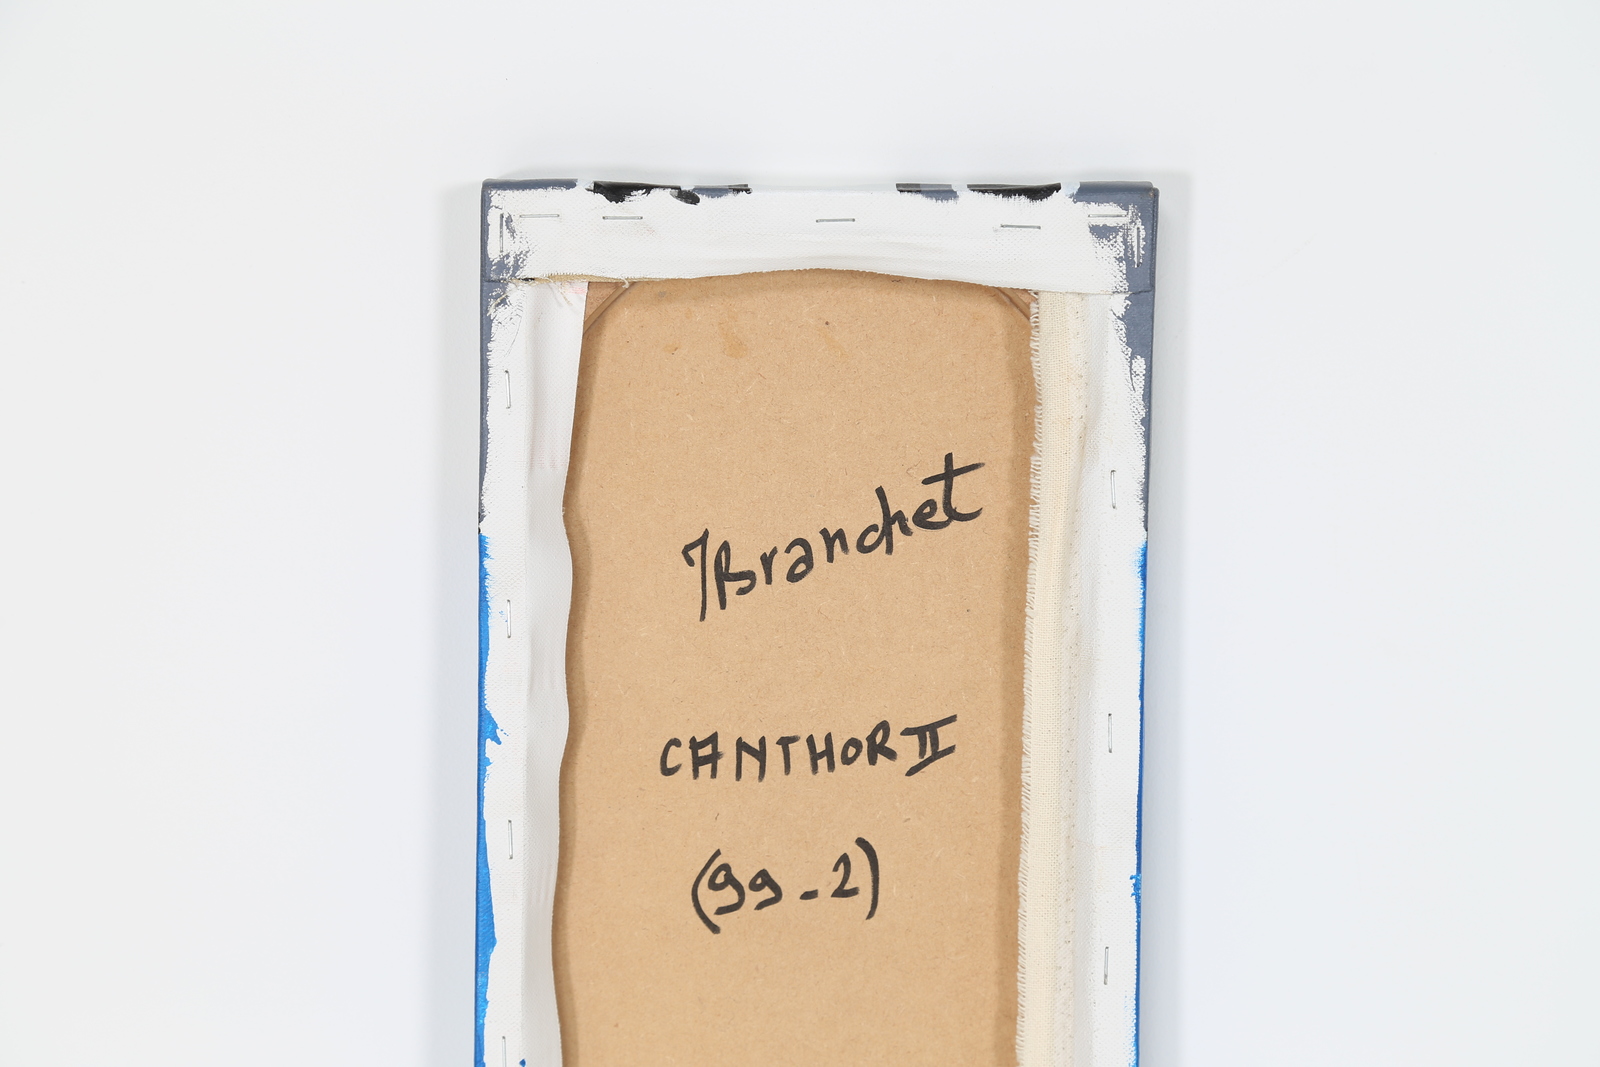 JBranchet
CANTHOR II
(99-2)